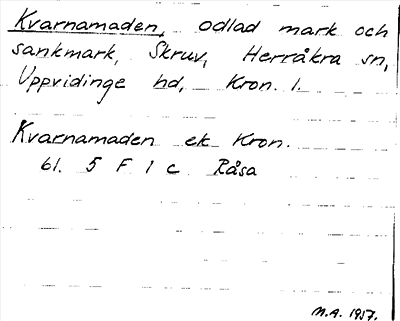 Kvarnamaden, odlad mark och
sankmark, Skruv, Herråkra sn,
Uppvidinge hd, Kron. l.
Kvarnamaden ek Kron.
61. 5 F 1 c Råsa
M.A. 1957.